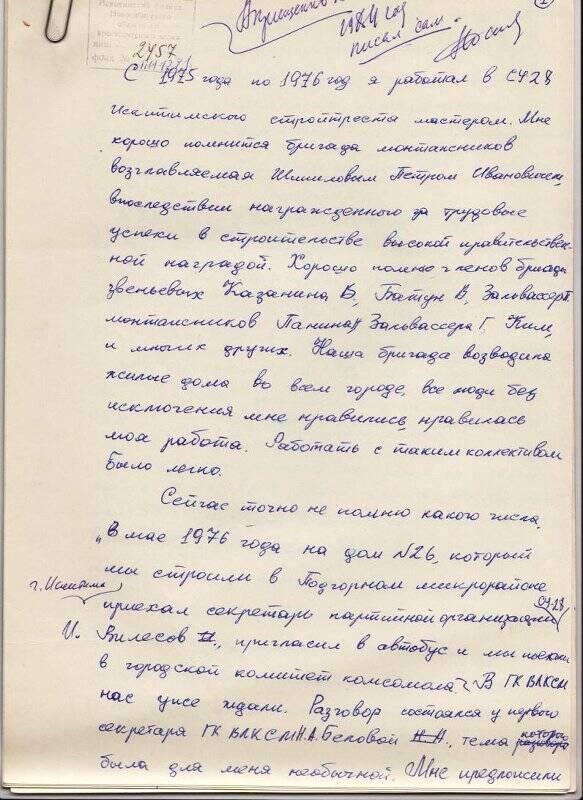 1
1984 год
писал сам.
2457
С 1975 года по 1976 год я работал в СУ 28
Искитимского стройтреста мастером. Мне
хорошо помнится бригада монтажников
возглавляемая Шмиловым Петром Ивановичем,
впоследствии награжденного за трудовые
успехи в строительстве высокой правительствен-
ной наградой. Хорошо помню членов бригады
звеньевых Казанина Б, Батун В, Зальвассер
монтажников Панина Зальвассера Г. Ким,
и многих других. Наша бригада возводила
жилые дома во всем городе, все люди без
исключения мне нравились, нравилась
моя работа. Работать с таким коллективом
было легко.
Сейчас точно не помню какого числа,
„В мае 1976 года на дом N26, который
мы строили в Подгорном микрорайоне
г. Искитима СУ-28
приехал секретарь партийной организации
И. Вилесов И., пригласил в автобус и мы поехали
в городской комитет комсомола. В ГК ВЛКСМ
нас уже ждали. Разговор состоялся у первого
секретаря ГК ВЛКСМ Н.А. Беловой Н.Н., тема которого разговора
была для меня необычной. Мне предложили